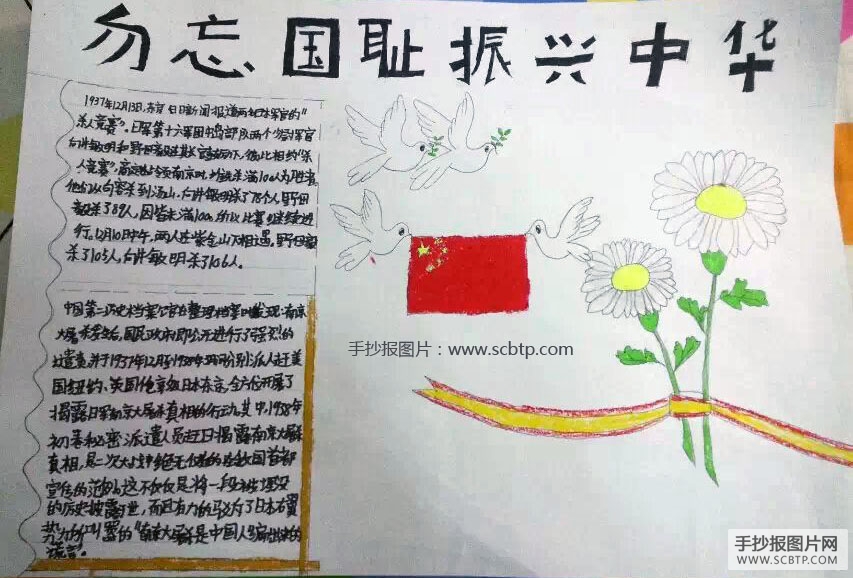 勿忘国耻振兴中华
1937年12月13日,东京日日新闻报道两名日本军官的"
杀人竞赛"。日军第十六军团中岛部队两个少尉军官
向井敏明和野田毅在其长官鼓励下,彼此相约"杀
人竞赛",商定在占领南京时,谁先杀满100人为胜者。
他们从句容杀到汤山,向井敏明杀了78人,野田
毅杀了89人,因皆未满100,所以比赛继续进
行。12月10日中午,两人在紫金山下相遇,野田毅
杀了105人,向井敏明杀了106人。
中国第二历史档案馆在整理档案时发现:南京
大屠杀发生后,国民政府即公开进行了强烈的
谴责,并于1937年12月至1938年分别派人赶赴美
国纽约、英国伦敦、日本东京,全方位开展了
揭露日军南京大屠杀真相的行动,其中,1938年
初春秘密派遣人员赴日揭露南京大屠杀
真相,是二次大战中绝无仅有的在敌国首都
宣传的范例。这不仅仅是将一段被埋没
的历史披露于世,而且有力的驳斥了日本右翼
势力所叫嚣的"南京大屠杀是中国人编出来的
谎言"。
手抄报图片:www.scbtp.com
手抄报图片网
WWW.SCBTP.COM